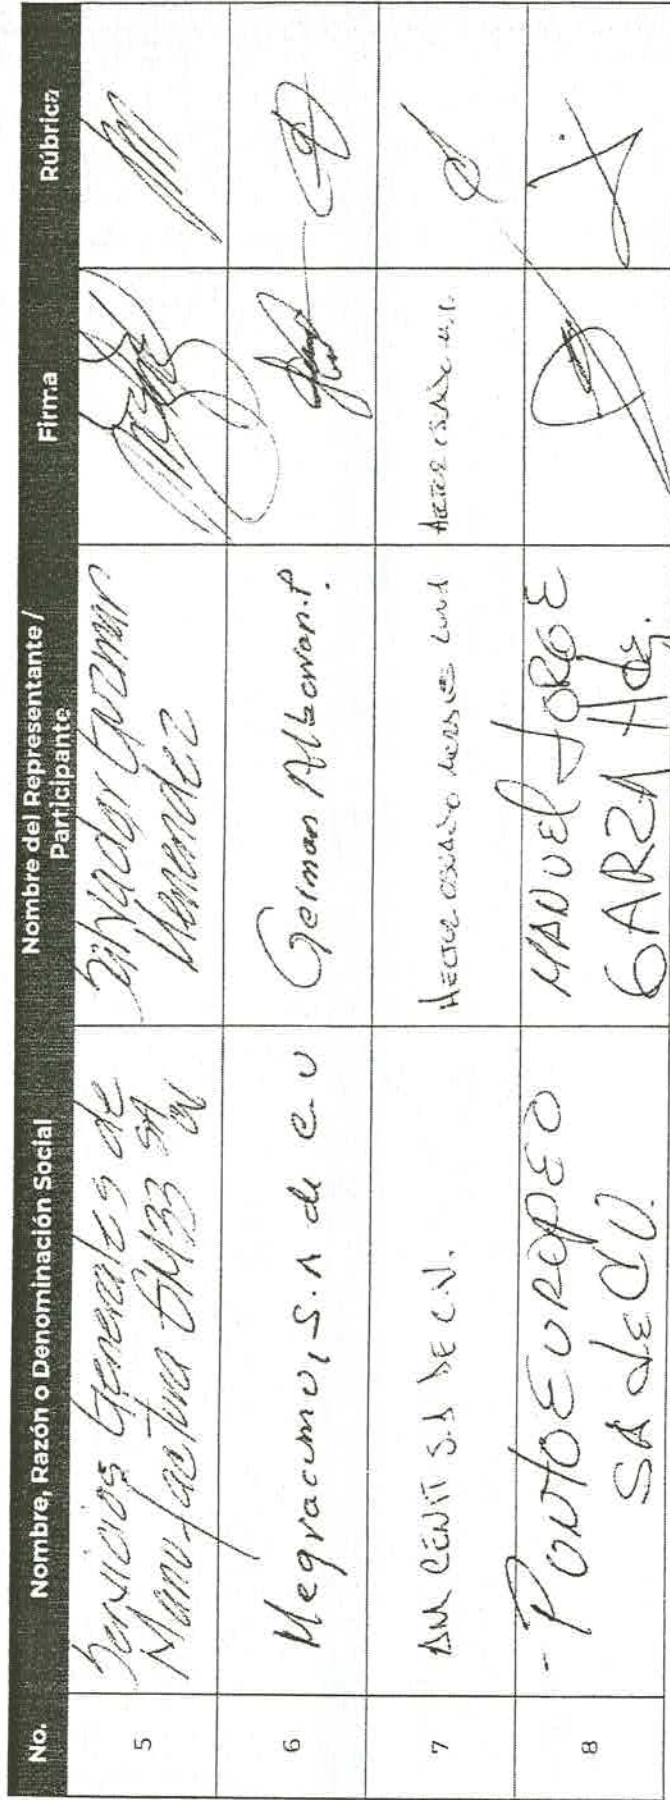 No. Nombre, Razón o Denominación Social Nombre del Representante / Participante Firma Rúbrica
5 Servicios Generales de
Manufactura GM33 SA
CV
Salvador Guzman
Menendez
6 Megracumu, S.A de C.V
German Albarran.P.
7 DM CENIT S.A DE C.V.
Hector
8 - PUNTO EUROPEO
SA de CV.
MANUEL JORGE
GARZA Hdz.